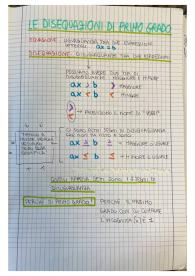 LE DISEQUAZIONI DI PRIMO GRADO
EQUAZIONE: UGUAGLIANZA TRA DUE ESPRESSIONI
LETTERALI ax = b
DISEQUAZIONE: DISUGUAGLIANZA TRA DUE ESPRESSIONI
POSSIAMO AVERE DUE TIPI DI
DISUGUAGLIANZE MAGGIORE E MINORE
ax > b } MAGGIORE
ax < b } MINORE
> <
PRENDONO IL NOME DI "VERSI"
CI SONO ALTRI SEGNI DI DISUGUAGLIANZA
ax ≥ b = MAGGIORE O UGUALE
ax ≤ b = MINORE O UGUALE
QUELLI APPENA SONO I SEGNI DI
DISUGUAGLIANZA
PERCHÉ DI PRIMO GRADO? PERCHÉ IL MASSIMO
GRADO CON CUI COMPARE
L'INCOGNITA (x) È 1